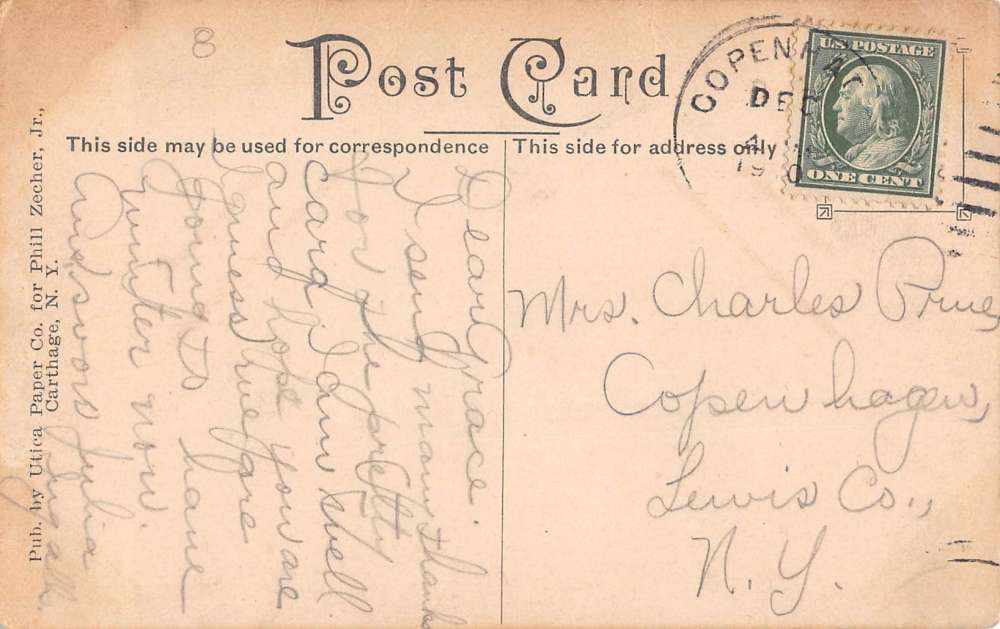 Post Card
This side may be used for correspondence
This side for address only
COPENHAG
DEC
19 0
U.S. POSTAGE
ONE CENT
8
Dear Grace.
I send many thanks
for the pretty
card I am well
and hope you are
I guess we are
going to have
winter now.
Julia
Mrs. Charles Prue,
Copenhagen,
Lewis Co.,
N. Y.
Pub. by Utica Paper Co. for Phill Zecher, Jr.,
Carthage, N. Y.